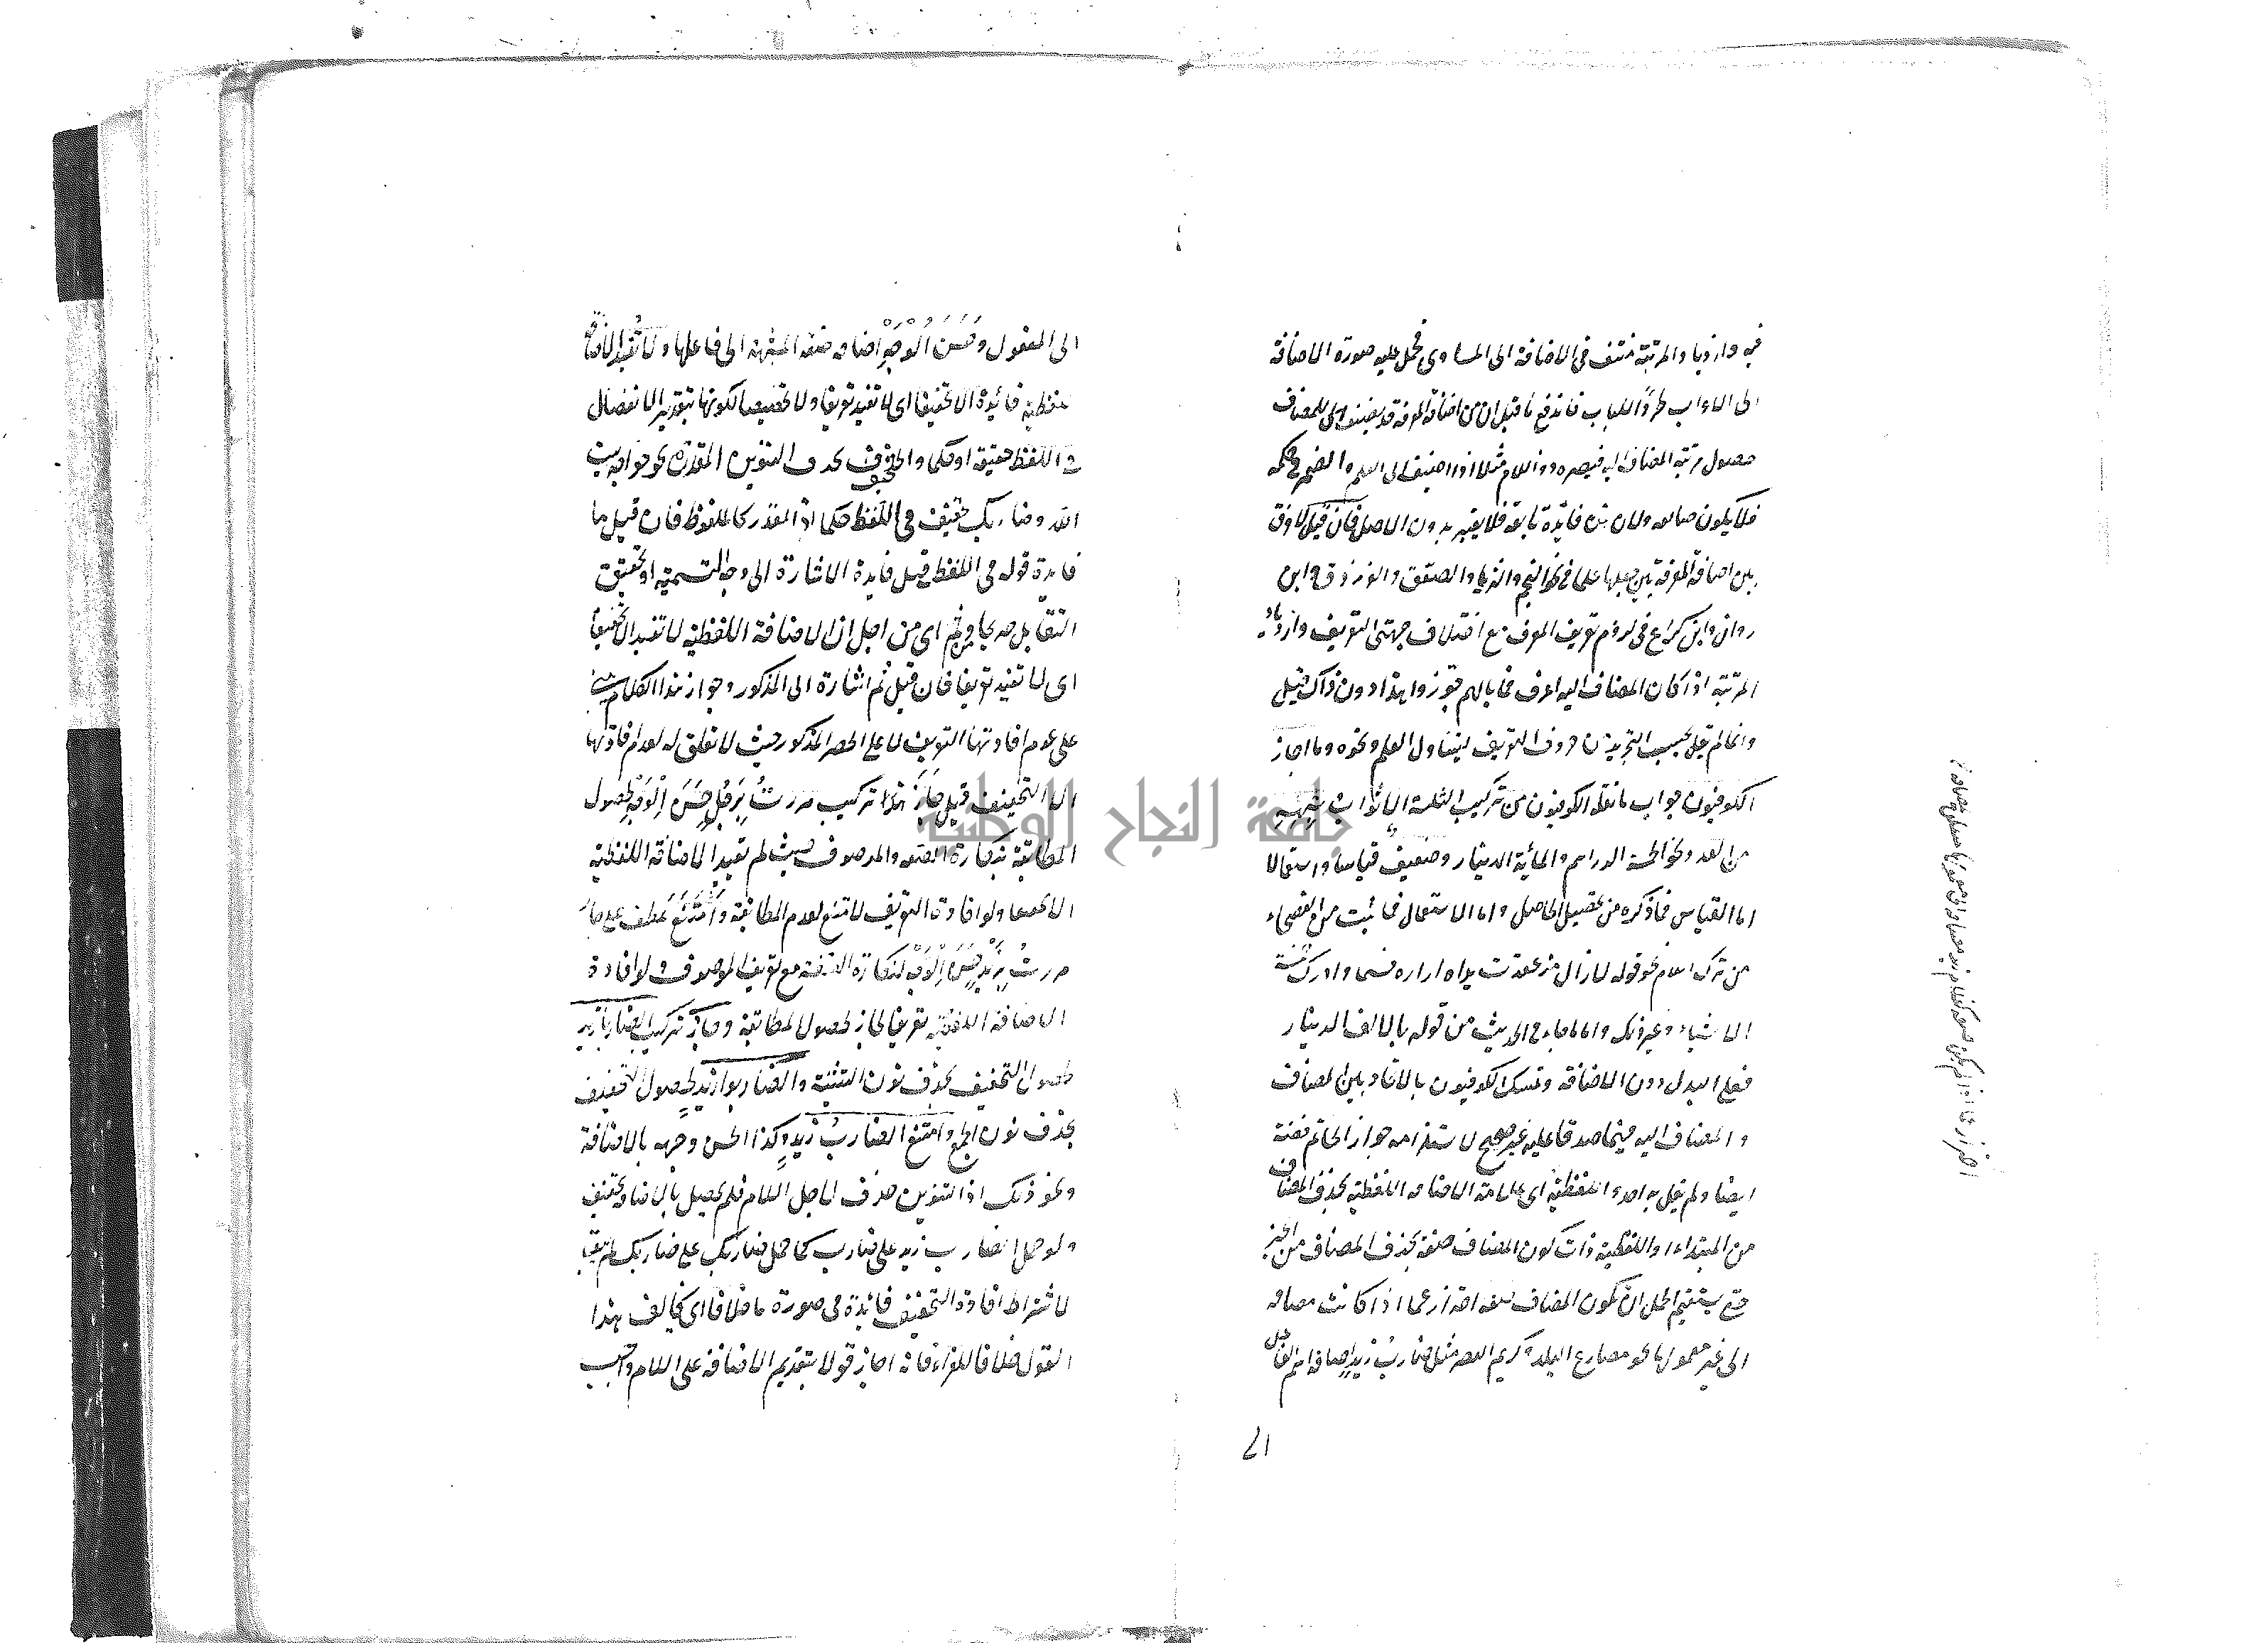 فيه وازدياد المرتبة منتف في الاضافة الى المساوى فحمل عليه صورة الاضافة
الى الاعراب طردا للباب فاندفع ما قيل ان من اضافة المعرفة قد يضيف الى المضاف
حصول مرتبة المضاف اليه فيصير ذو اللام مثلا اذا اضيف الى العلم والضمير في حكمه
فلا يكون ضالعه ولان هذه فائدة تابعة فلا يعتبر بدون الاصل فان قيل لا فرق
بين اضافة المعرفة بين جعلها علما في نحو النجم والثريا والصعق والفرزدق وابن
روان وابن كراع في لزوم تعريف المعرف مع اختلاف جهتى التعريف وازدياد
المرتبة اذا كان المضاف اليه اعرف فما بالهم جوزوا هذا دون ذاك قيل
وانما لم يقل بحسب التجريد من حروف التعريف ليتناول العلم ونحوه وما اجاز
الكوفيون جواب ما نقله الكوفيون من تركيب الثلثة الاثواب وشبهه
من العدد نحو الخمسة الدراهم والمائة الدينار وضعيف قياسا واستعمالا
اما القياس فما ذكره من تحصيل الحاصل واما الاستعمال فما ثبت من الفصحاء
من ترك اللام نحو قوله ما زال مذ عقدت يداه ازاره فسما وادرك خمسة
الاشبار وغير ذلك واما ما جاء في الحديث من قوله بالالف الدينار
فعلى البدل دون الاضافة وتمسك الكوفيون بالاتحاد بين المضاف
والمضاف اليه فيما صدقا عليه غير صحيح لاستلزامه جواز الخاتم فضة
ايضا ولم يقل به احد واللفظية اى علامة الاضافة اللفظية بحذف المضاف
من المبتداء او اللفظية ذات كون المضاف صفة بحذف المضاف من الخبر
حتى يستقيم الحمل ان يكون المضاف صفة احترازا عما اذا كانت مضافة
الى غير معمولها نحو مصارع البلد وكريم العصر مثل ضارب زيد اضافة اسم الفاعل
٧١
الى المفعول وحسن الوجه اضافة صفة المشبهة الى فاعلها ولا تفيد الاضافة
اللفظية فائدة الا تخفيفا اى لا تفيد تعريفا ولا تخصيصا لكونها بتقدير الانفصال
في اللفظ حقيقة او حكما والتخفيف بحذف التنوين المقدرة نحو حواج بيت
الله وضاربك تخفيف في اللفظ حكما اذ المقدر كالملفوظ فان قيل ما
فايدة قوله في اللفظ قيل فايدة الاشارة الى وجه التسمية او تحقيق
التقابل صريحا ومن ثم اى من اجل ان الاضافة اللفظية لا تفيد الا تخفيفا
اى لا تفيد تعريفا فان قيل ثم اشارة الى المذكور وجواز هذا الكلام مبنى
على عدم افادتها التعريف لا على الحصر المذكور حيث لا تعلق له لعدم افادتها
الا التخفيف قيل جاز هذا تركيب مررت برجل حسن الوجه لحصول
المطابقة بنكارة الصفة والموصوف حيث لم تفيد الاضافة اللفظية
الا تخفيفا ولو افادت التعريف لامتنع لعدم المطابقة وامتنع عطف على جاز
مررت بزيد حسن الوجه لنكارة الصفة مع تعريف الموصوف ولو افادت
الاضافة اللفظية تعريفا لجاز لحصول المطابقة وجاز تركيب الضاربا زيد
لحصول التخفيف بحذف نون التثنية والضاربوا زيد لحصول التخفيف
بحذف نون الجمع وامتنع الضارب زيد وكذا الحسن وجهه بالاضافة
ونحو ذلك اذ التنوين حذف لاجل اللام فلم يحصل بالاضافة تخفيف
ولو حمل الضارب زيد على ضارب كما حمل ضاربك على ضاربك لم يبق
لاشتراط افادة التخفيف فائدة في صورة ما خلافا اى يخالف هذا
القول خلافا للفراء فانه اجاز قولا بتقديم الاضافة على اللام واجيب
جامعة النجاح الوطنية